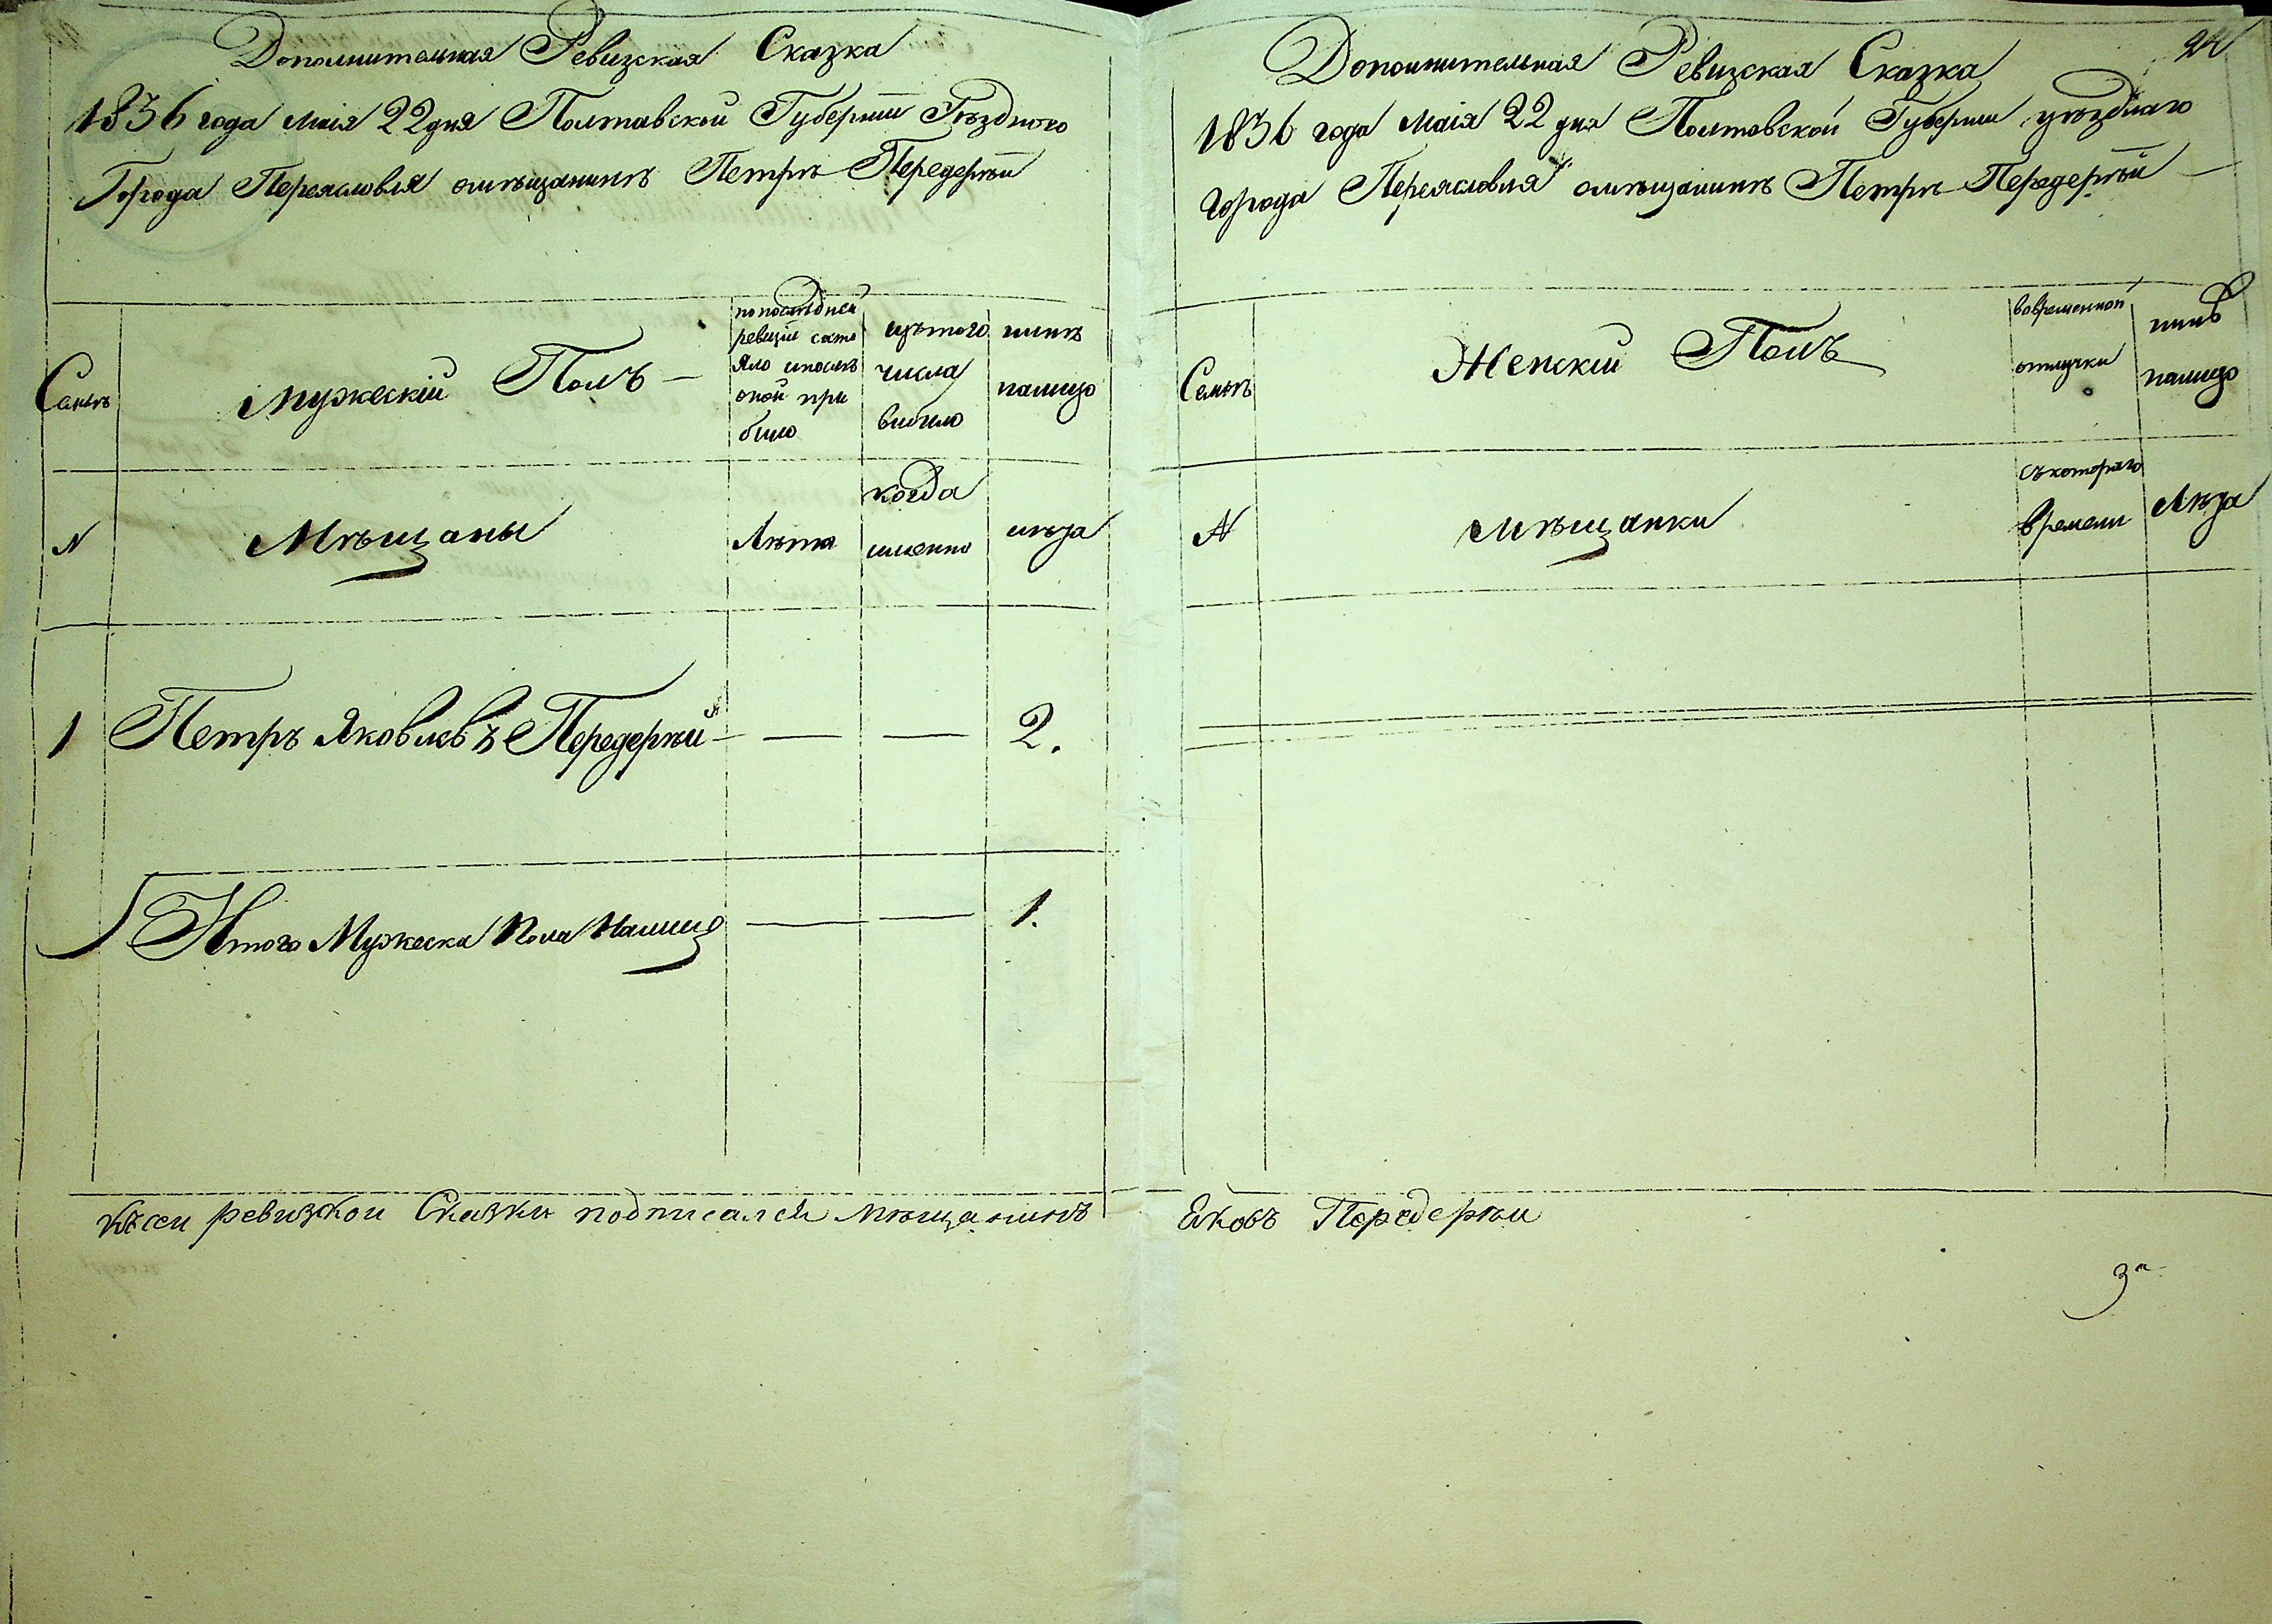 Дополнительная Ревизская Сказка
1836 года маія 22 дня Полтавской Губерніи Уѣздного
Города Переяславля омѣщанинѣ Петрѣ Передерѣй
Семьи
мужескій Полъ
попоследней
ревизіи состо
яло ипослѣ
оной при
било
изътого
числа
вибило
нинѣ
налицо
N
Мѣщаны
Лѣта
когда
именно
лѣта
1 Петръ Яковлевъ Передерѣй — — 2.
Итого Мужеска Пола Налицо — — 1.
Ксей ревизкои Сказки подписался мѣщанинъ
24
Дополнительная Ревизская Сказка
1836 года Маія 22 дня Полтавской Губерніи уѣзднаго
города Переяславля омѣщанинѣ Петрѣ Передерѣй
Семьи
Женскій Полъ
вовременной
отлучки
нинѣ
налицо
N
мѣщанки
съкотораго
времени
Лѣта
Яковъ Передерѣи